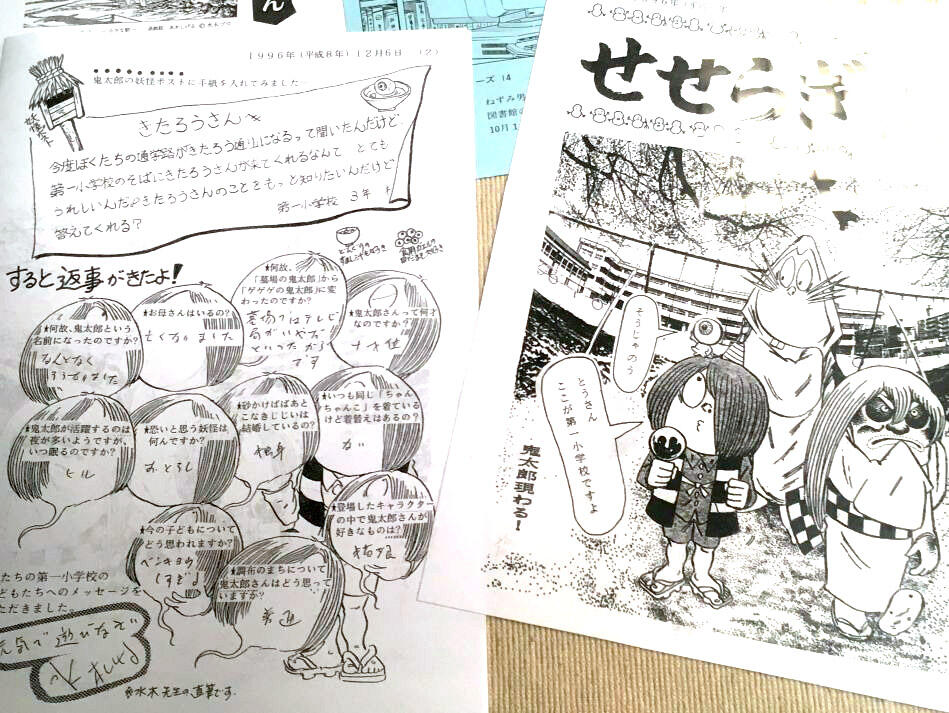 ん
1996年(平成8年)12月6日 (2)
鬼太郎の妖怪ポストに手紙を入れてみました
きたろうさんへ
今度ぼくたちの通学路がきたろう通りになるって聞いたんだけど、
第一小学校のそばにきたろうさんが来てくれるなんて とても
うれしいんだ。きたろうさんのことをもっと知りたいんだけど
答えてくれる?
第一小学校 3年
すると返事がきたよ!
★何故、鬼太郎という
名前になったのですか?
なんとなく
そうなりました
★お母さんはいるの?
なくなりました
★何故、
「墓場の鬼太郎」から
「ゲゲゲの鬼太郎」に変
わったのですか?
墓場ではテレビ
局がいやだ
といったから
です
★鬼太郎さんって何才
なのですか?
★鬼太郎が活躍するのは
夜が多いようですが、
いつ眠るのですか?
ヒル
★恐いと思う妖怪は
何んですか?
おとろし
★砂かけばばあと
こなきじじいは
結婚しているの?
独身
★いつも同じ「ちゃん
ちゃんこ」を着ている
けど着替えはあるの?
★今の子どもについて
どう思われますか?
ベンキョウ
しすぎ
★調布のまちについて
鬼太郎さんはどう思って
いますか?
普通
★登場したキャラクタ
の中で鬼太郎さんが
好きなものは?
たちの第一小学校の
どもたちへのメッセージを
ただきました。
元気で遊びなさい
水木先生の直筆です。
ーズ 14
ねずみ男
図書館の
10月1
せせらぎ
そうじゃのう
とうさん
ここが第一小学校ですよ
鬼太郎現わる!